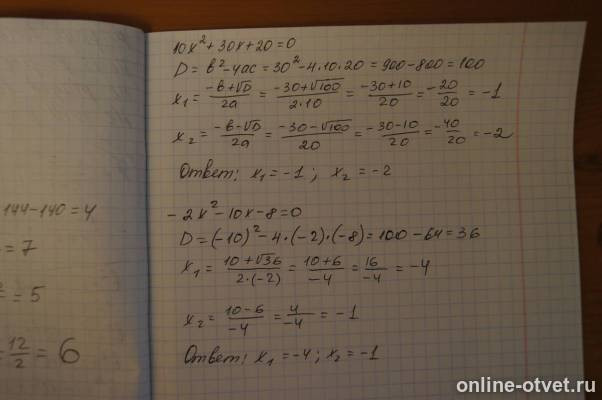 10x² + 30x + 20 = 0
D = b² - 4ac = 30² - 4·10·20 = 900 - 800 = 100
x₁ = (-b + √D)/2a = (-30 + √100)/(2·10) = (-30 + 10)/20 = -20/20 = -1
x₂ = (-b - √D)/2a = (-30 - √100)/20 = (-30 - 10)/20 = -40/20 = -2
Ответ: x₁ = -1; x₂ = -2
- 2x² - 10x - 8 = 0
D = (-10)² - 4·(-2)·(-8) = 100 - 64 = 36
x₁ = (10 + √36)/(2·(-2)) = (10 + 6)/-4 = 16/-4 = -4
x₂ = (10 - 6)/-4 = 4/-4 = -1
Ответ: x₁ = -4; x₂ = -1
144 - 140 = 4
= 7
= 5
= 12/2 = 6
online-otvet.ru